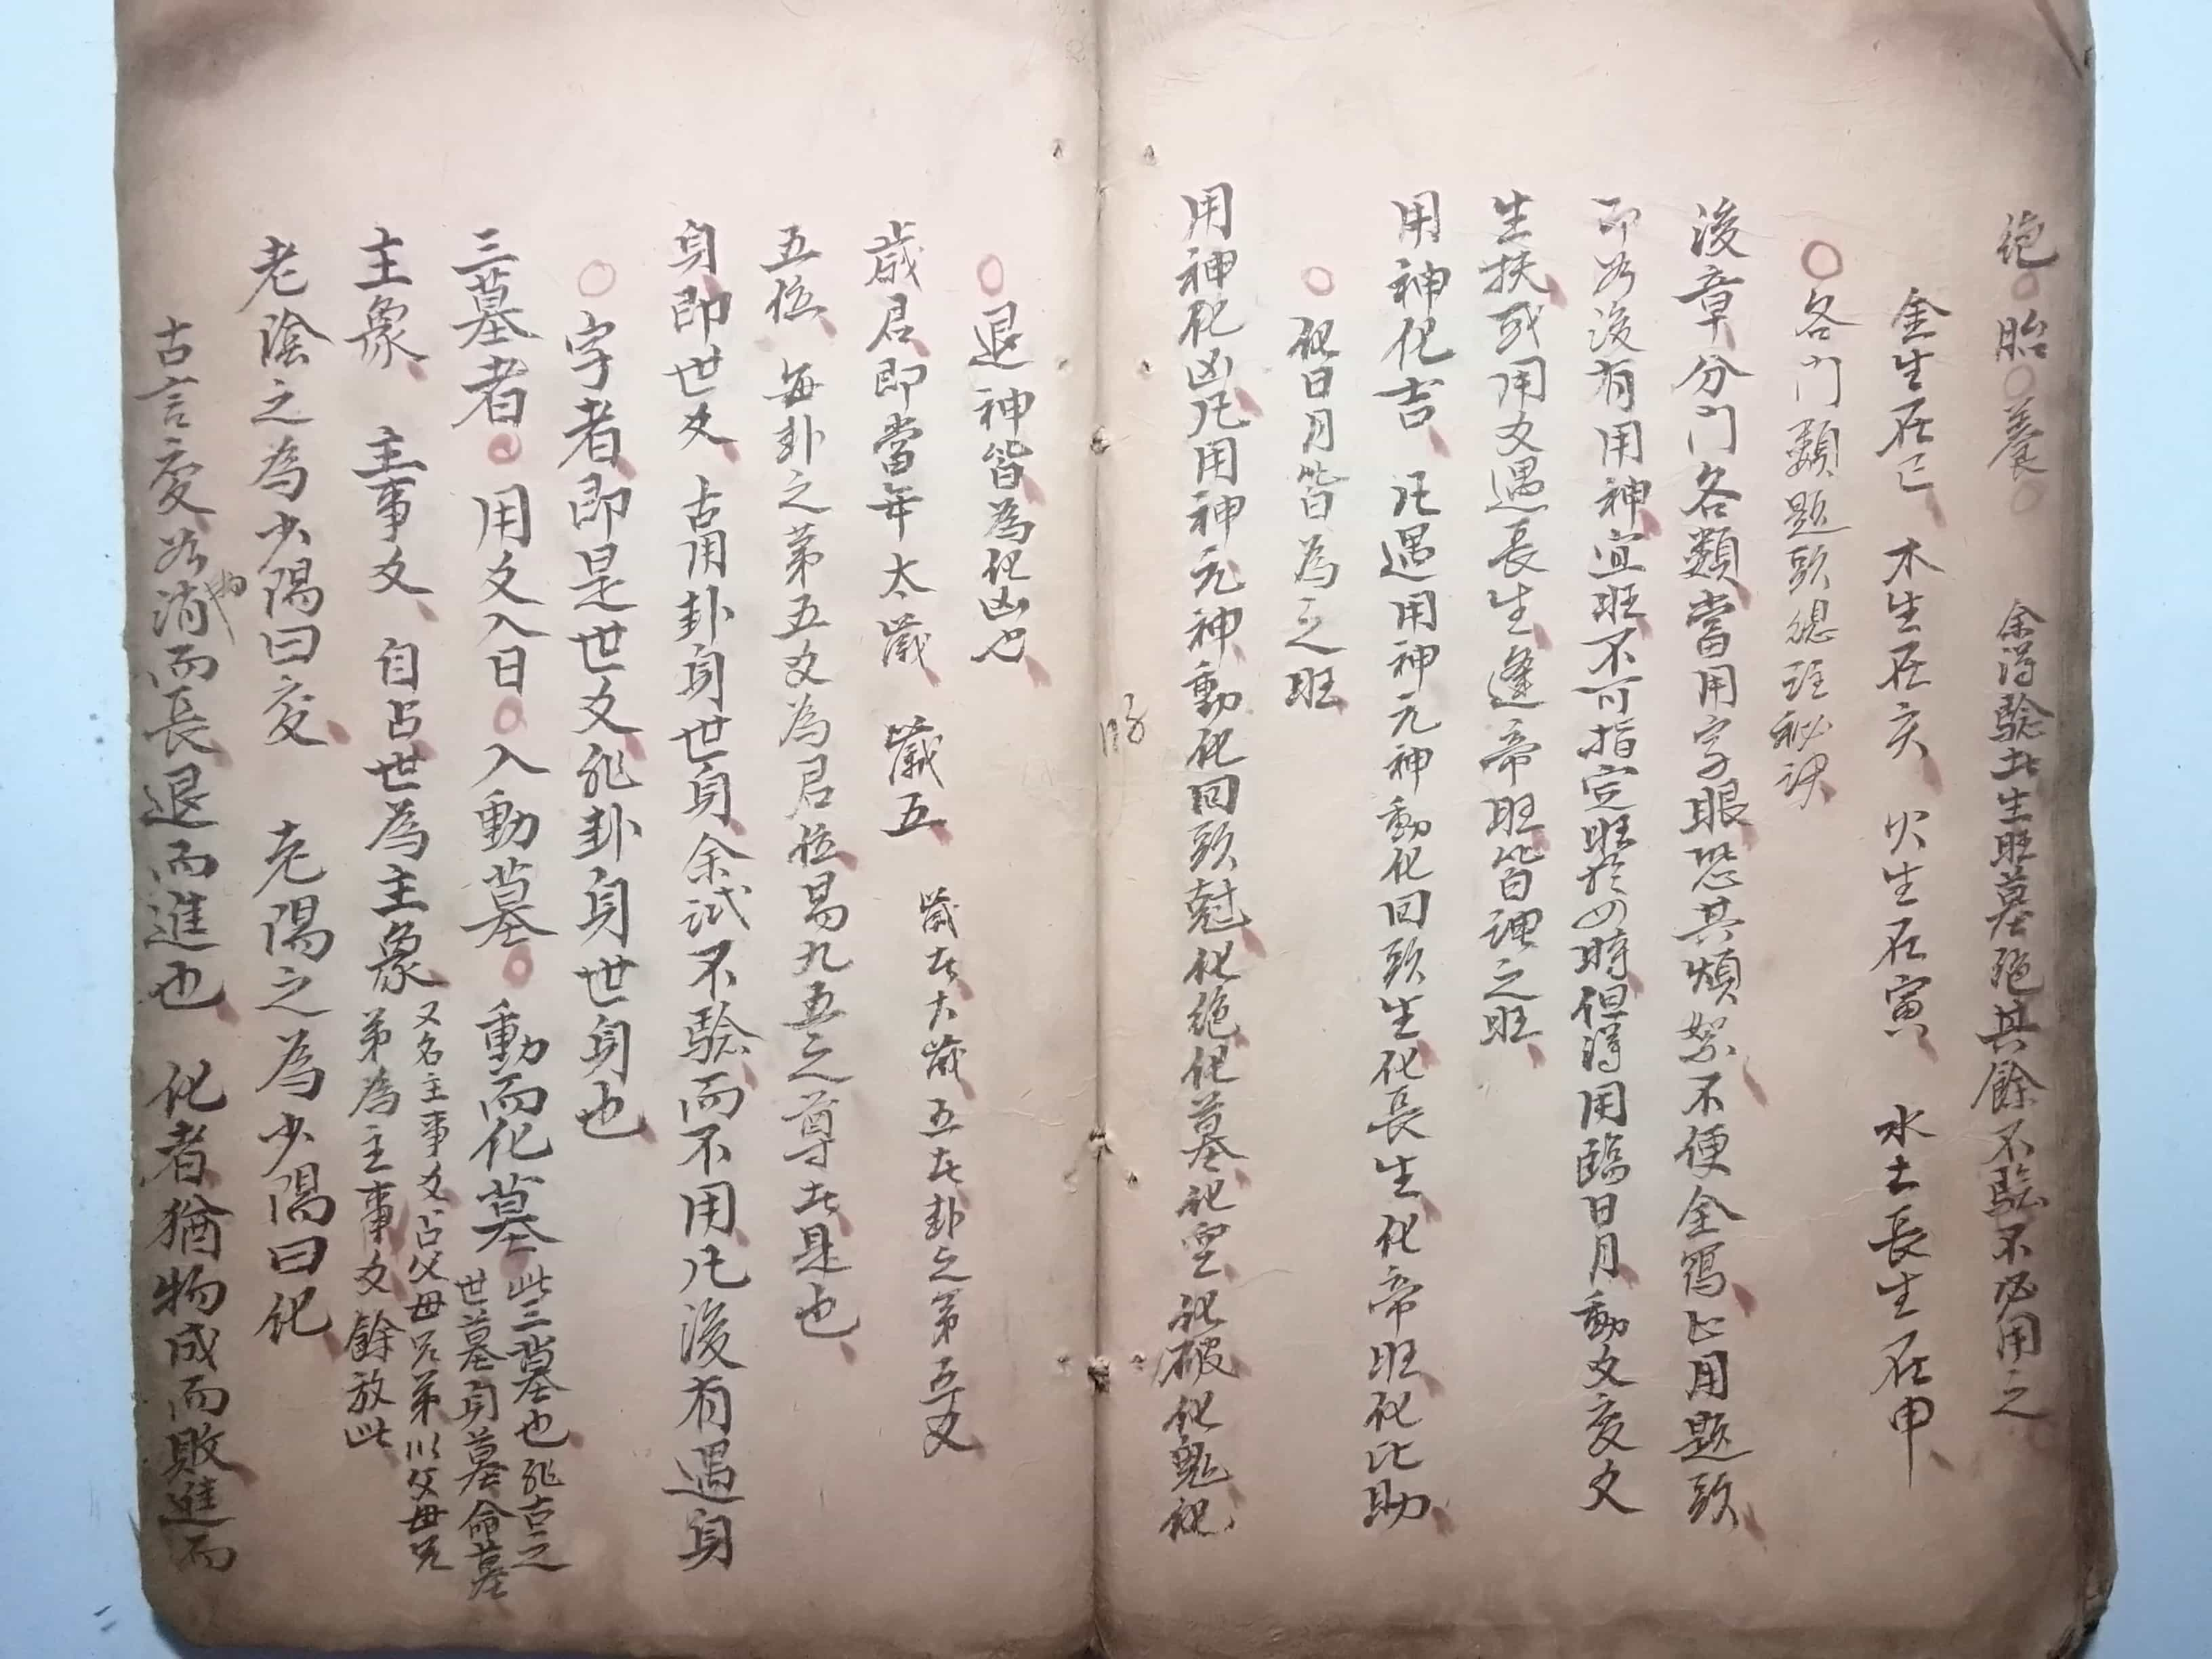 絶○胎○養○　余得驗者生旺墓絶其餘不驗不必用之
金生在巳　木生在亥　火生在寅　水土長生在申
○各門類題頭總註秘訣
後章分門各類當用字眼恐其煩絮不便全寫止用題頭
即如後有用神宜旺不可指定旺於四時但得用臨日月動爻変爻
生扶或用爻遇長生逢帝旺皆謂之旺
用神化吉　凡遇用神元神動化回頭生化長生化帝旺化比助
○化日月皆為之旺
用神化凶凡用神元神動化回頭尅化絶化墓化空化破化鬼化
118
○退神皆為化凶也
歲君即當年太歲　歲五　歲者太歲五者卦之第五爻
五位　每卦之第五爻為君位易九五之尊者是也
身即世爻　古用卦身世身余試不驗而不用凡後有遇身
○字者即是世爻非卦身世身也
三墓者○用爻入日○入動墓○動而化墓　此三墓也非古之
世墓身墓命墓
主象　主事爻　自占世為主象　又名主事爻占父母兄弟以父母兄
弟為主事爻餘放此
老陰之為少陽曰変　老陽之為少陽曰化
古言変如物消而長退而進也　化者猶物成而敗進而